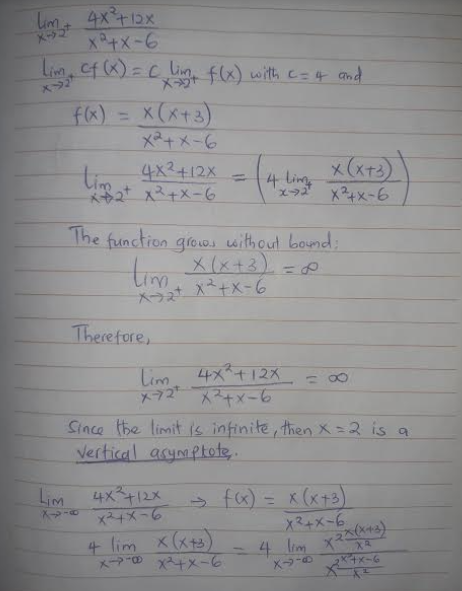 lim x→2⁺ (4x²+12x)/(x²+x-6)
lim x→2⁺ cf(x) = c lim x→2⁺ f(x) with c = 4 and
f(x) = x(x+3)/(x²+x-6)
lim x→2⁺ (4x²+12x)/(x²+x-6) = (4 lim x→2⁺ x(x+3)/(x²+x-6))
The function grows without bound:
lim x→2⁺ x(x+3)/(x²+x-6) = ∞
Therefore,
lim x→2⁺ (4x²+12x)/(x²+x-6) = ∞
Since the limit is infinite, then x = 2 is a
vertical asymptote.
lim x→-∞ (4x²+12x)/(x²+x-6) → f(x) = x(x+3)/(x²+x-6)
4 lim x→-∞ x(x+3)/(x²+x-6) = 4 lim x→-∞ (x² x(x+3)/x²)/(x² (x²+x-6)/x²)